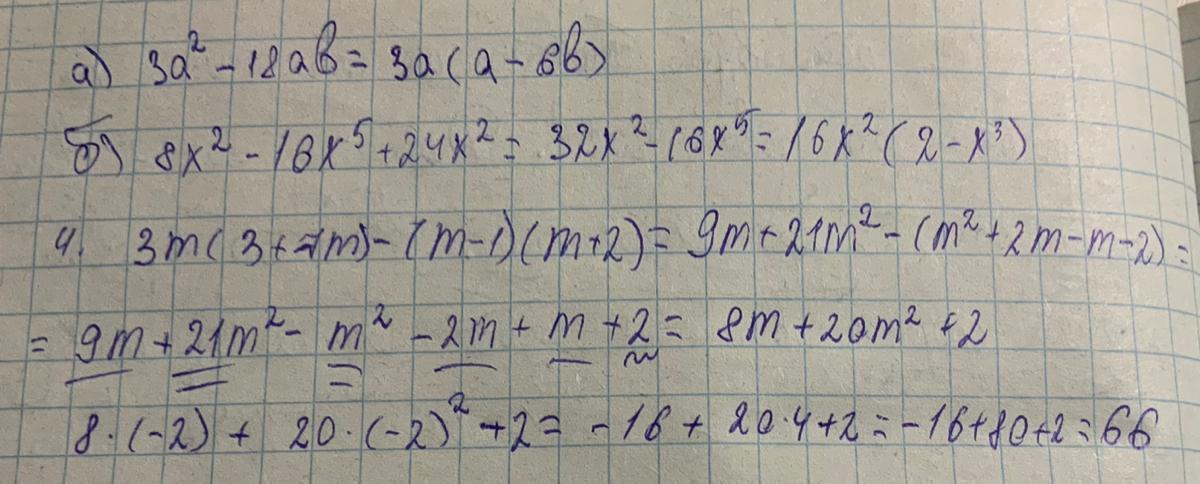 а) 3a² - 18ab = 3a(a - 6b)
б) 8x² - 16x⁵ + 24x² = 32x² - 16x⁵ = 16x²(2 - x³)
4. 3m(3+7m) - (m-1)(m+2) = 9m + 21m² - (m² + 2m - m - 2) =
= 9m + 21m² - m² - 2m + m + 2 = 8m + 20m² + 2
8·(-2) + 20·(-2)² + 2 = -16 + 20·4 + 2 = -16 + 80 + 2 = 66